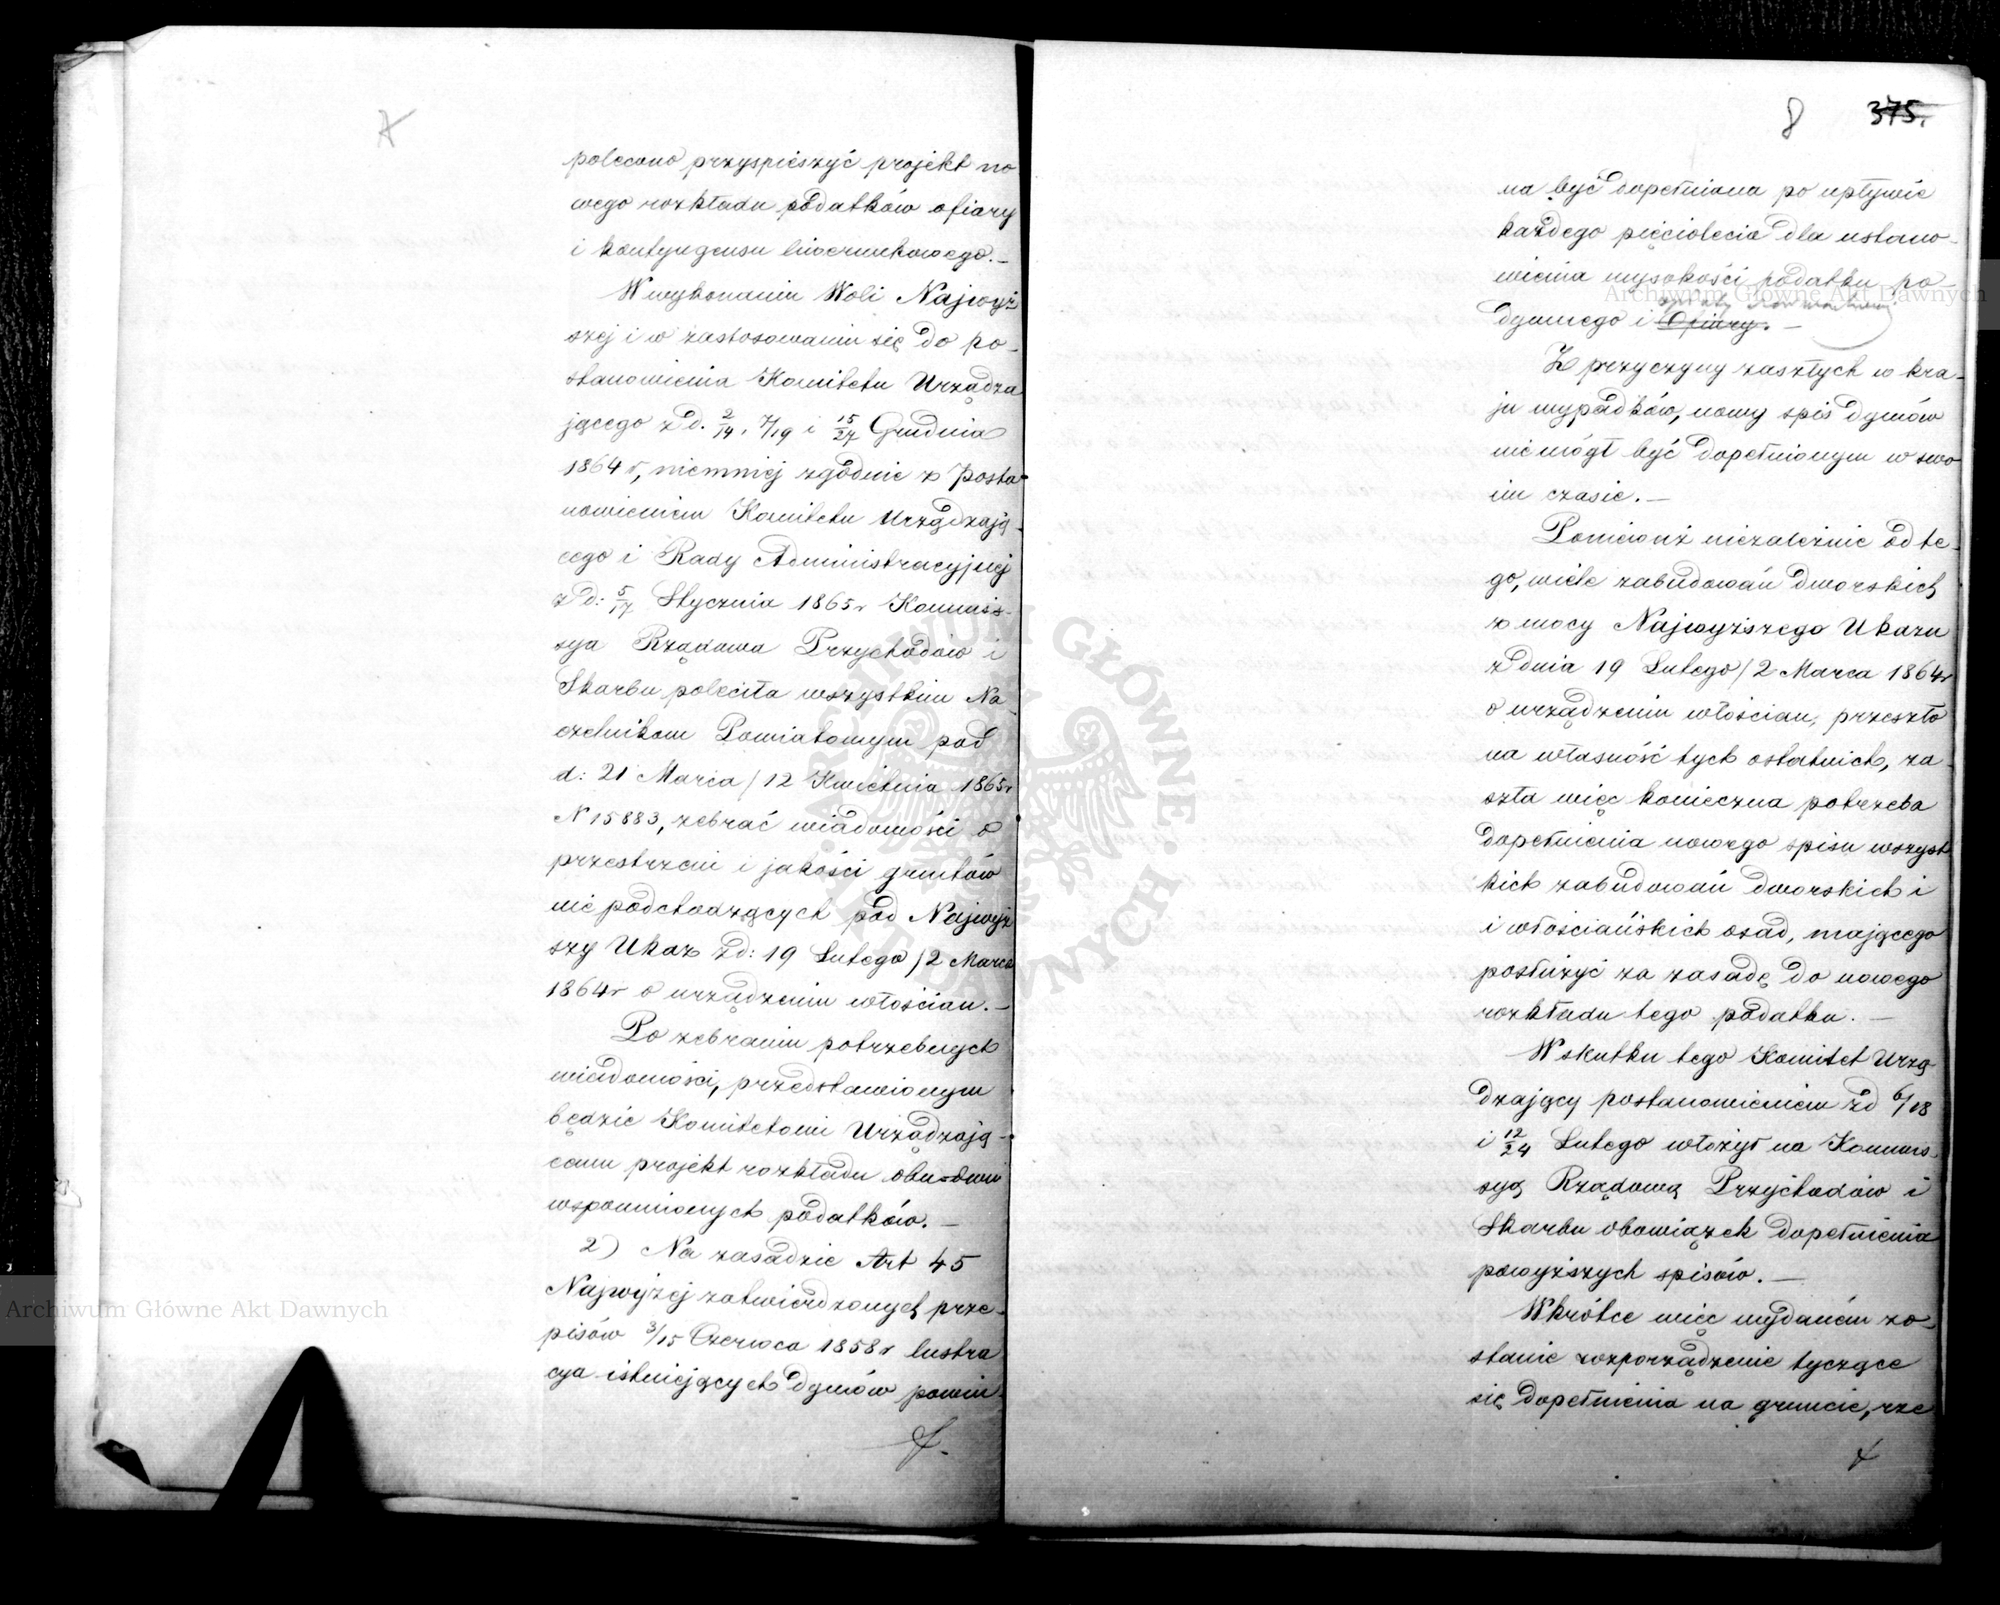 7
polecono przyspieszyć projekt no
wego rozkładu podatków ofiary
i kontyngensu liwerunkowego.—
W wykonaniu Woli Najwyż
szej i w zastosowaniu się do po-
stanowienia Komitetu Urządza
jącego z d. 2/14, 7/19 i 15/27 Grudnia
1864 r, niemniej zgodnie z Posta
nowieniem Komitetu Urządzają-
cego i Rady Administracyjnej
z d: 5/17 Stycznia 1865 r Kommis-
sya Rządowa Przychodów i
Skarbu poleciła wszystkim Na-
czelnikom Powiatowym pod
d: 21 Marca / 12 Kwietnia 1865 r
N 15883, zebrać wiadomości o
przestrzeni i jakości gruntów
nie podchodzących pod Najwyż
szy Ukaz z d: 19 Lutego / 2 Marca
1864 r o urządzeniu włościan.—
Po zebraniu potrzebnych
wiadomości, przedstawionym
będzie Komitetowi Urządzają-
cemu projekt rozkładu obu-dwu
wspomnionych podatków.—
2) Na zasadzie Art 45
Najwyżej zatwierdzonych prze-
pisów 3/15 Czerwca 1858 r lustra
cya istniejących dymów powin-
8 375.
na być dopełniana po upływie
każdego pięciolecia dla ustano-
wienia wysokości podatku po-
dymnego i Ofiary.—
Z przyczyny zaszłych w kra-
ju wypadków, nowy spis dymów
nie mógł być dopełnionym w swo
im czasie.—
Ponieważ niezależnie od te-
go, wiele zabudowań dworskich
z mocy Najwyższego Ukazu
z dnia 19 Lutego / 2 Marca 1864 r
o urządzeniu włościan, przeszło
na własność tych ostatnich, za-
szła więc konieczna potrzeba
dopełnienia nowego spisu wszyst
kich zabudowań dworskich i
i włościańskich osad, mającego
posłużyć za zasadę do nowego
rozkładu tego podatku.—
W skutku tego Komitet Urzą
dzający postanowieniem z d 6/18
i 12/24 Lutego włożył na Kommis-
syą Rządową Przychodów i
Skarbu obowiązek dopełnienia
powyższych spisów.—
Wkrótce więc wydanem zo-
stanie rozporządzenie tyczące
się dopełnienia na gruncie, rze
Archiwum Główne Akt Dawnych
Archiwum Główne Akt Dawnych